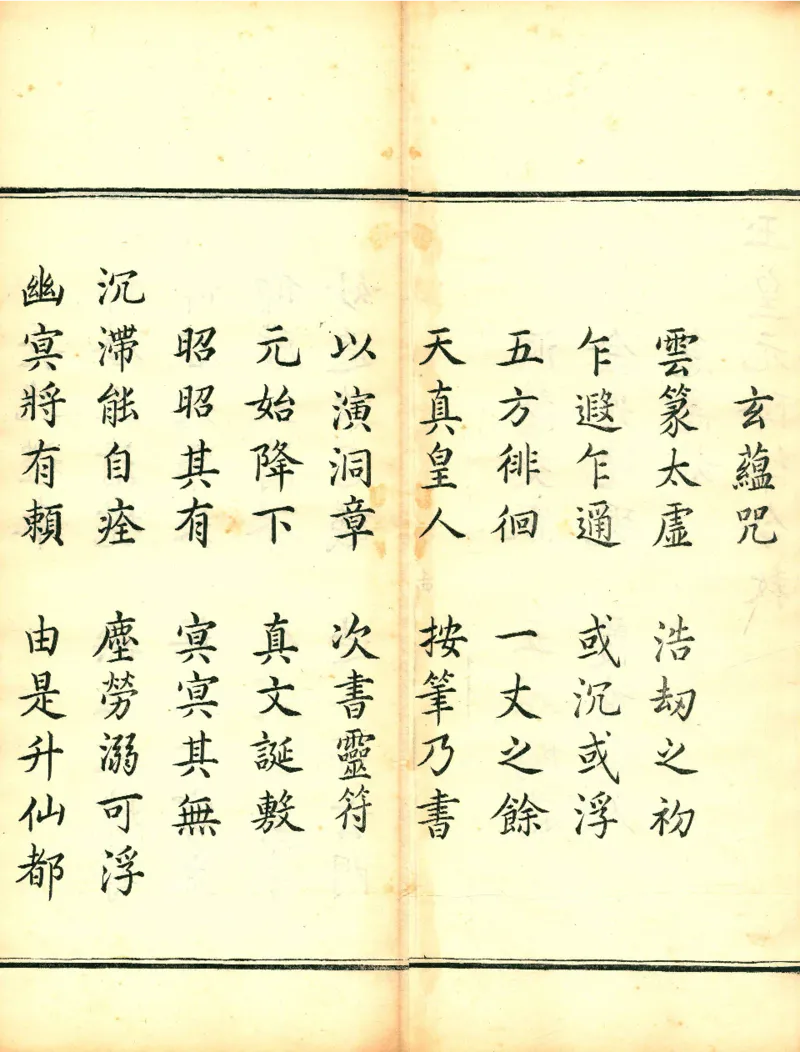 玄蘊咒
雲篆太虛 浩劫之初
乍遐乍邇 或沉或浮
五方徘徊 一丈之餘
天真皇人 按筆乃書
以演洞章 次書靈符
元始降下 真文誕敷
昭昭其有 冥冥其無
沉滯能自痊 塵勞溺可浮
幽冥將有賴 由是升仙都